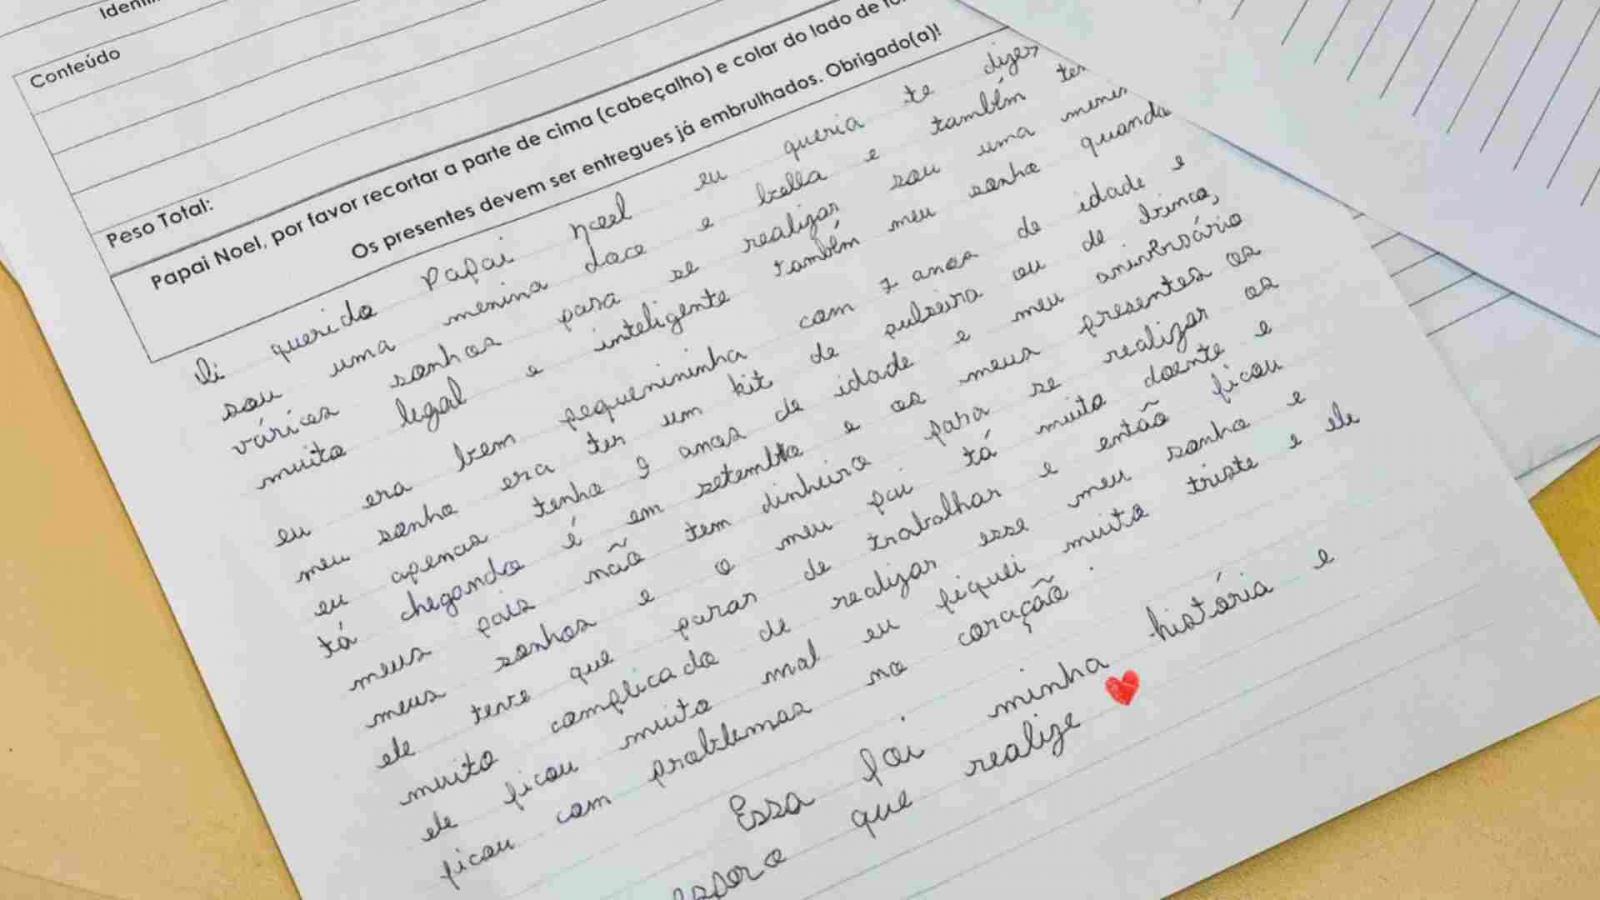 Conteúdo
Peso Total:
Papai Noel, por favor recortar a parte de cima (cabeçalho) e colar do lado de
Os presentes devem ser entregues já embrulhados. Obrigado(a)!
Oi querido Papai Noel eu queria te dizer
sou uma menina doce e bella e também
vários sonhos para se realizar sou uma
muito legal e inteligente também meu sonho quando
eu era bem pequenininha com 7 anos de idade e
meu sonho era ter um kit de pulseira ou de brinco,
eu apenas tenho 9 anos de idade e meu aniversário
tá chegando é em setembro e os meus presentes os
meus pais não tem dinheiro para se realizar os
meus sonhos e o meu pai tá muito doente e
ele teve que parar de trabalhar e então ficou
muito complicado de realizar esse meu sonho e
ele ficou muito mal eu fiquei muito triste e ele
ficou com problemas no coração.
Essa foi minha história e
espero que realize